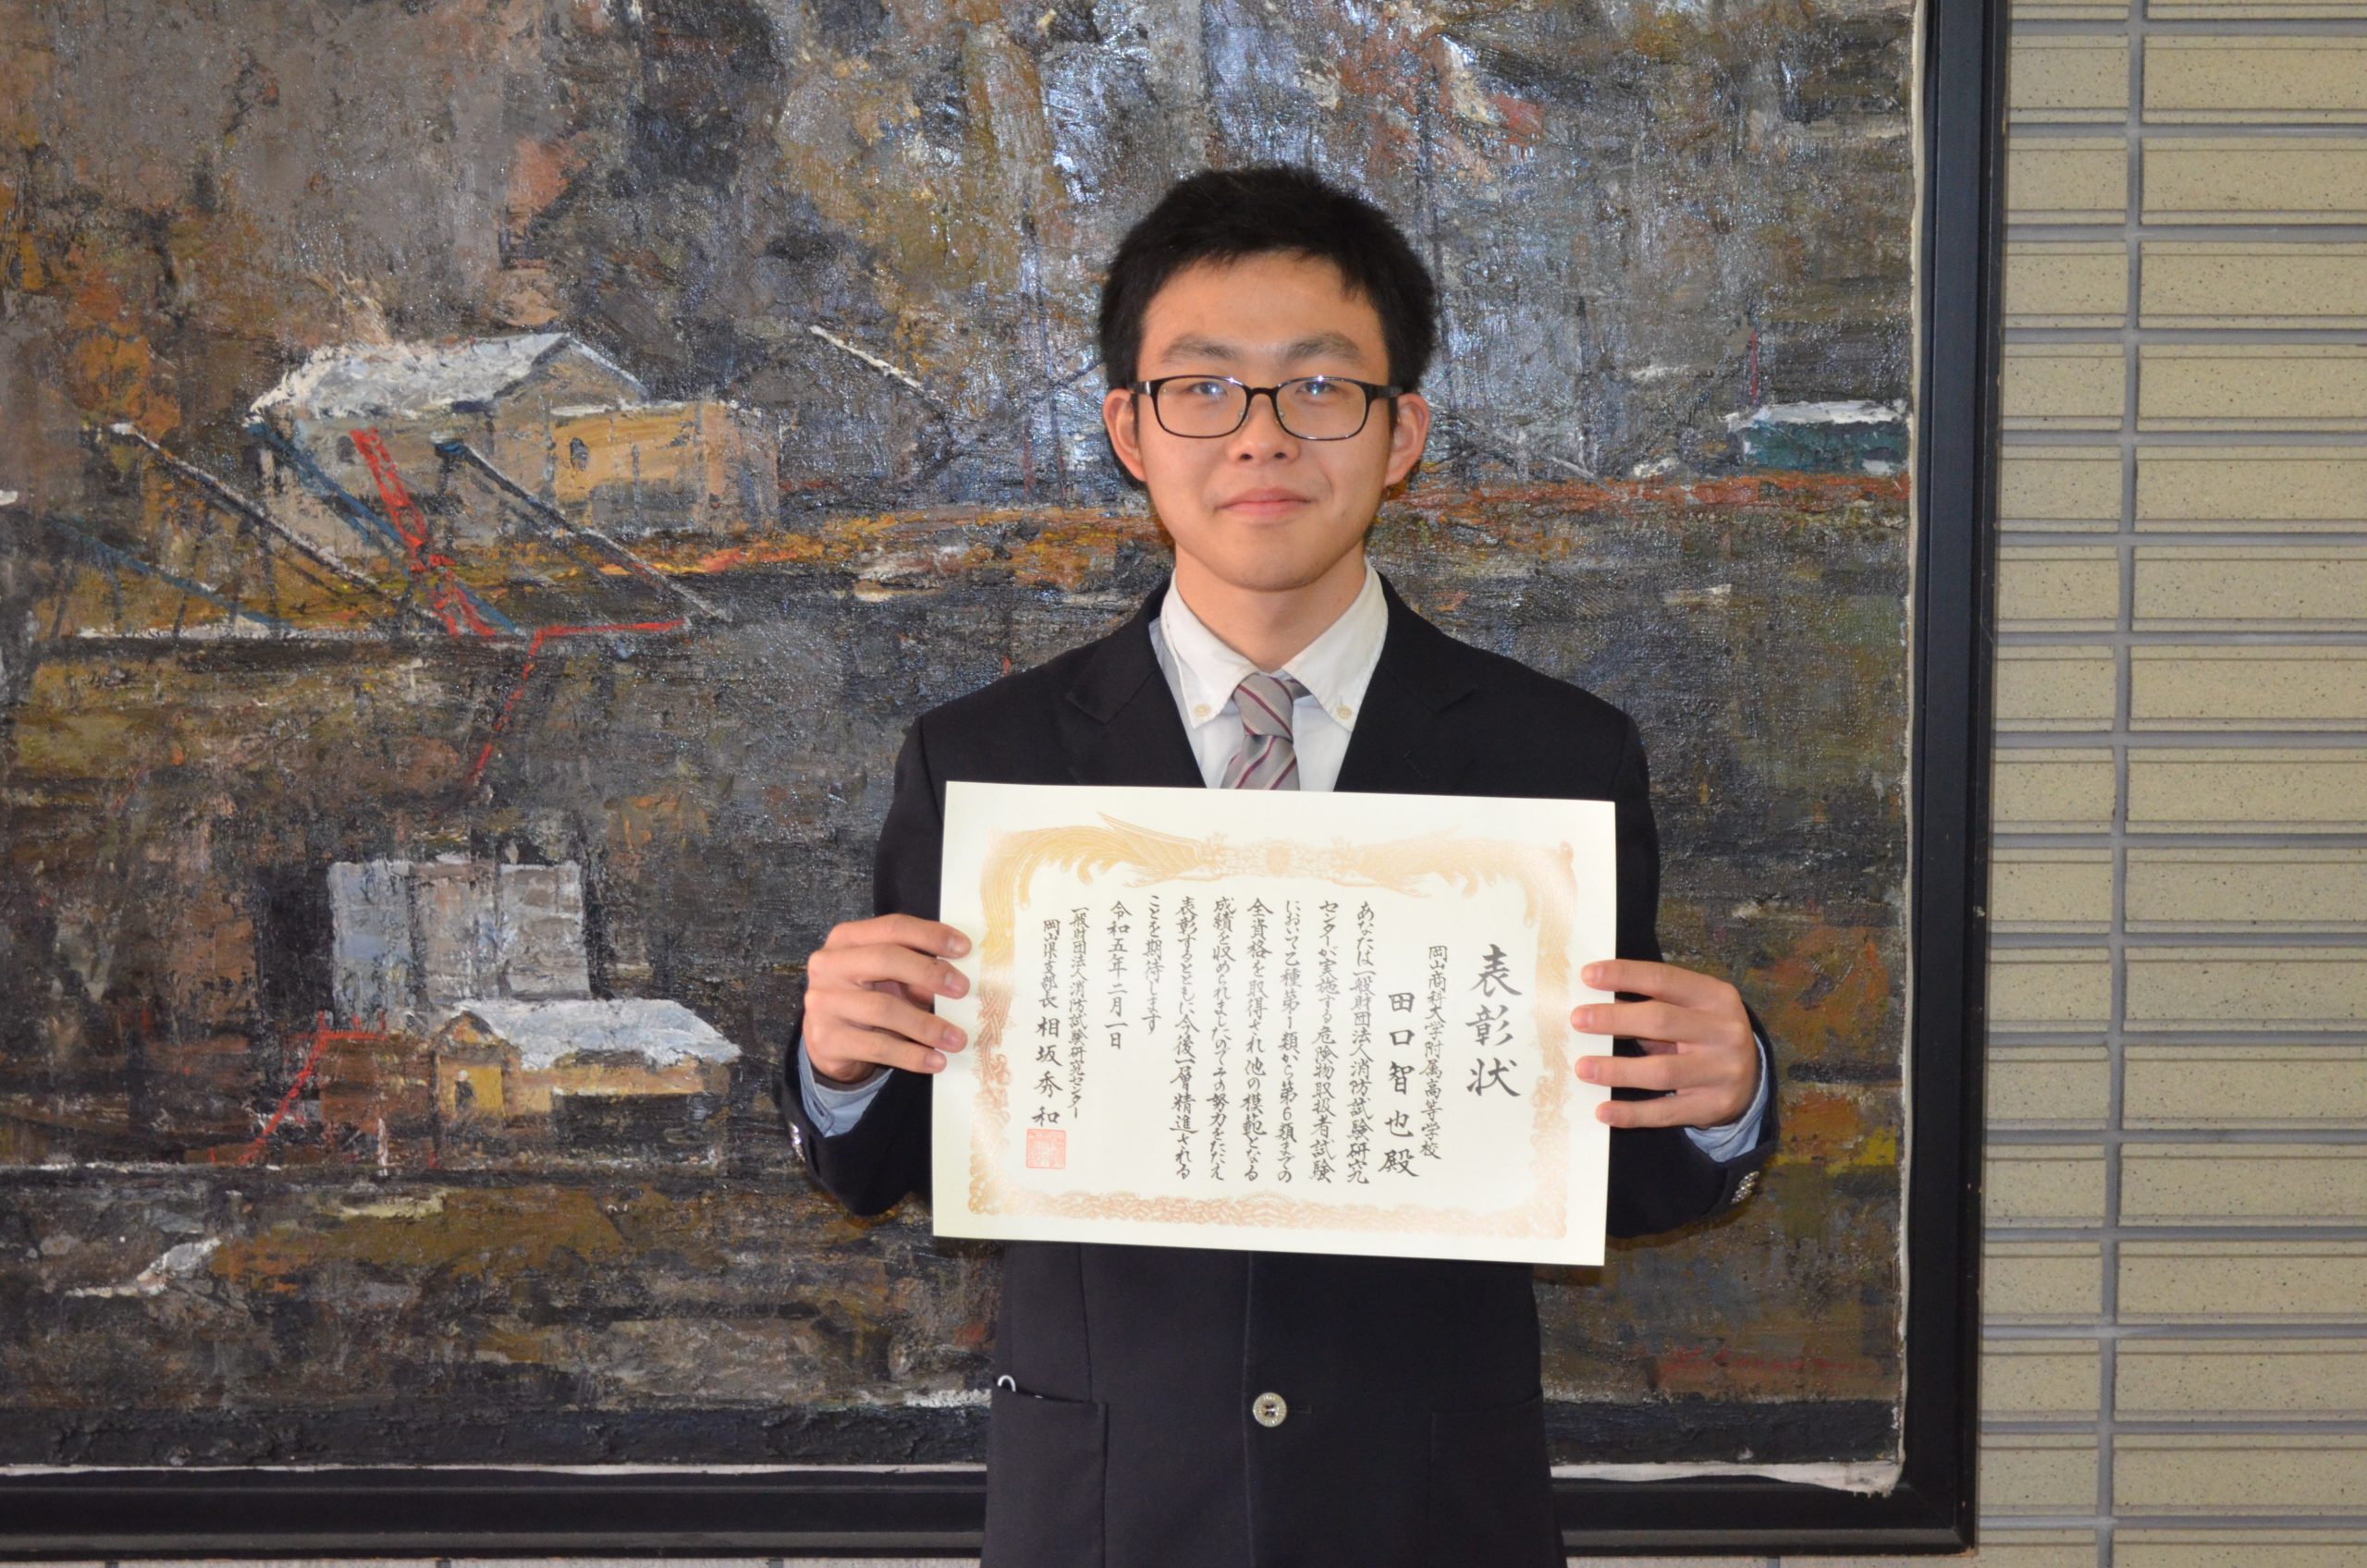 表彰状
岡山商科大学附属高等学校
田口智也殿
あなたは一般財団法人消防試験研究
センターが実施する危険物取扱者試験
において乙種第1類から第6類までの
全資格を取得され他の模範となる
成績を収められましたのでその努力をたたえ
表彰するとともに今後一層精進される
ことを期待します
令和五年二月一日
一般財団法人消防試験研究センター
岡山県支部長 相坂秀和